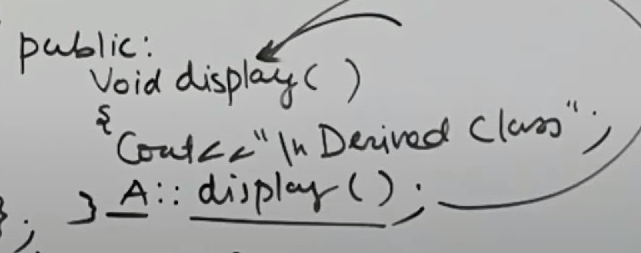 public:
Void display( )
{
Cout<<"\n Derived Class";
}; } A:: display( );